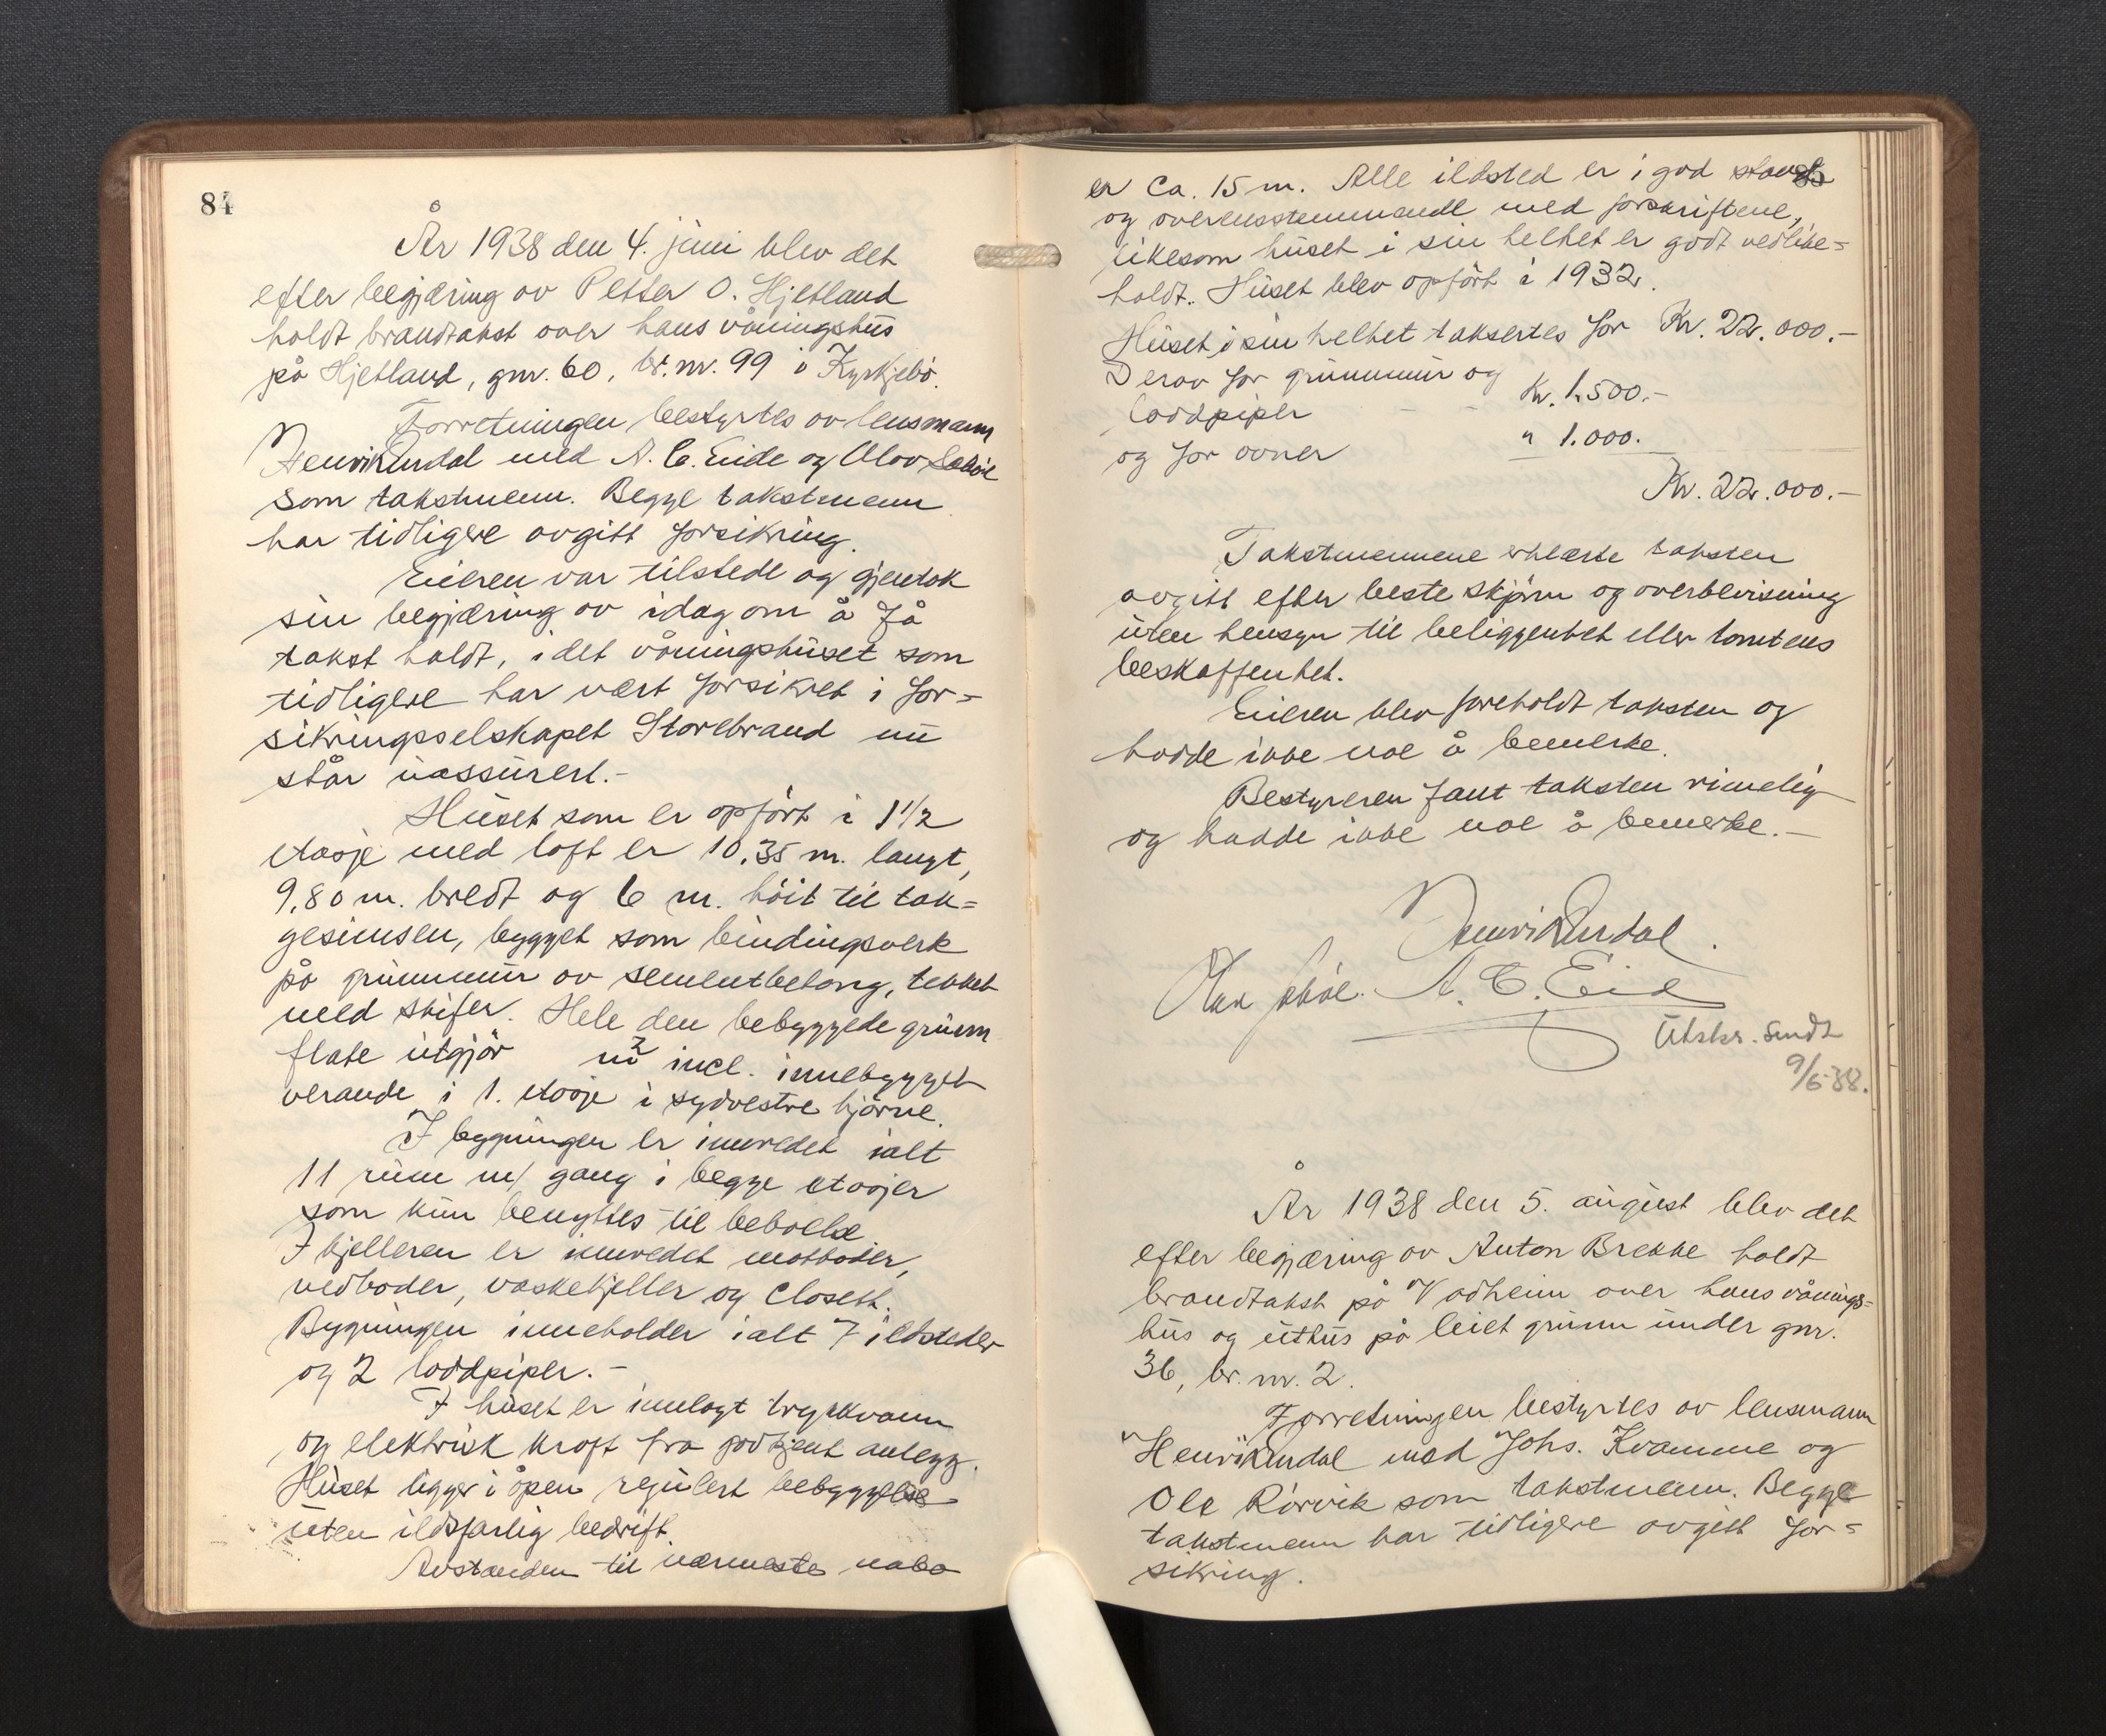 84
År 1938 den 4. juni blev det
efter begjæring av Petter O. Hjetland
holdt brandtakst over hans våningshus
på Hjetland, gnr. 60, br. nr. 99 i Kyrkjebö.
Forretningen bestyrtes av lensmann
Henrik Lurdal med A. C. Eide og Olav
som takstmenn. Begge takstmenn
har tidligere avgitt forsikring.
Eieren var tilstede og gjentok
sin begjæring av idag om å få
takst holdt, idet våningshuset som
tidligere har vært forsikret i for-
sikringsselskapet Storebrand nu
står uassurert.-
Huset som er opfört i 1 1/2
etasje med loft er 10,35 m. langt,
9,80 m. bredt og 6 m. höit til tak-
gesimsen, bygget som bindingsverk
på grunnmur av sementbetong, tekket
med skifer. Hele den bebyggede grunn
flate utgjör m² incl. innebygget
verande i 1. etasje i sydvestre hjörne.
I bygningen er innredet ialt
11 rum m/ gang i begge etasjer
som kun benyttes til beboelse
I kjelleren er innredet matboder,
vedboder, vaskekjeller og closett.
Bygningen inneholder ialt 7 ildsteder
og 2 loddpiper.-
I huset er innlagt trykkvann
og elektrisk kraft fra godkjent anlegg.
Huset ligger i åpen regulert bebyggelse
uten ildsfarlig bedrift.
Avstanden til nærmeste nabo
85
er ca. 15 m. Alle ildsted er i god stand
og overensstemmende med forskriftene,
likesom huset i sin helhet er godt vedlike-
holdt. Huset blev opfört i 1932.
Huset i sin helhet takseres for Kr. 22.000.-
Derav for grunnmur og
loddpiper - - Kr. 1.500.-
og for ovner " 1.000.
Kr. 22.000.-
Takstmennene erklærte taksten
avgitt efter beste skjönn og overbevisning
uten hensyn til beliggenhet eller tomtens
beskaffenhet.
Eieren blev foreholdt taksten og
hadde ikke noe å bemerke.
Bestyreren fant taksten rimelig
og hadde ikke noe å bemerke.-
Henrik Lurdal.
A. C. Eide
Utskr. sendt
9/6-38.
År 1938 den 5. august blev det
efter begjæring av Anton Brekke holdt
brandtakst på Vadheim over hans vånings-
hus og uthus på leiet grunn under gnr.
36, br. nr. 2.
Forretningen bestyrtes av lensmann
Henrik Lurdal med Johs. Kvamme og
Ole Rörvik som takstmenn. Begge
takstmenn har tidligere avgitt for-
sikring.